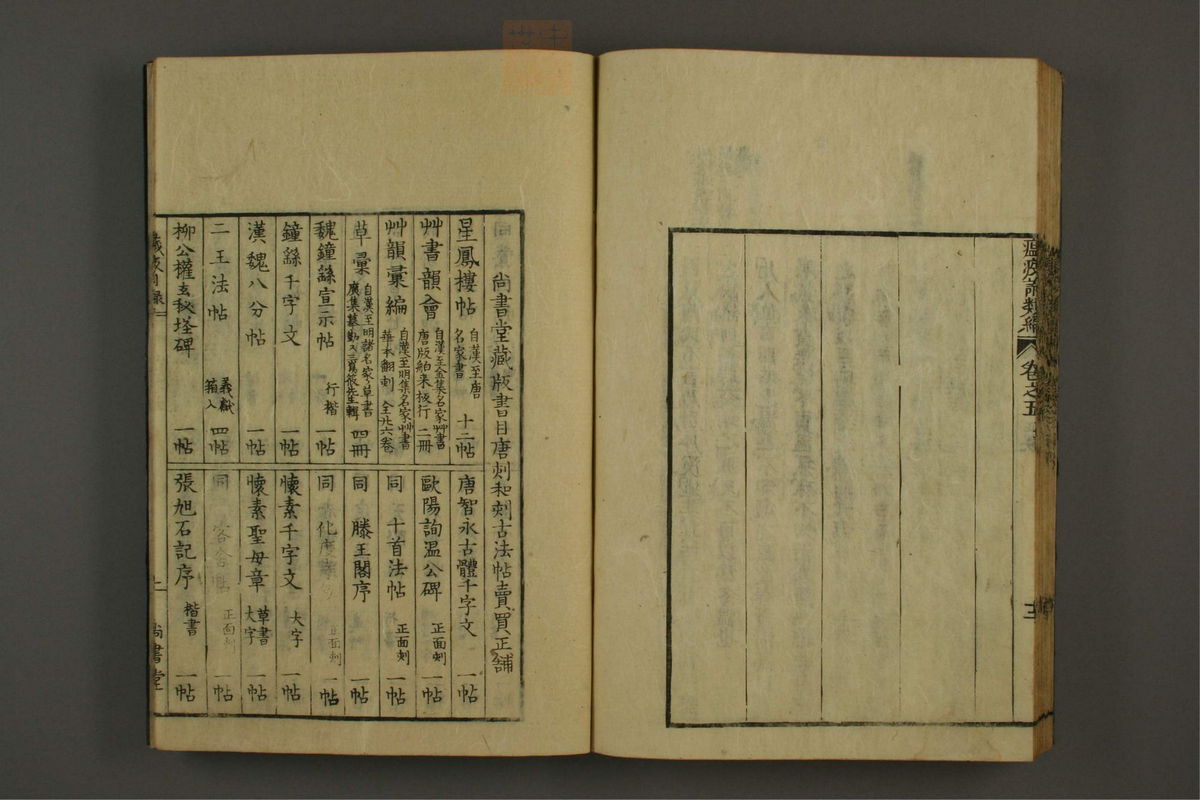 瘟疫論類編
卷之五
尚書堂藏版書目唐刻和刻古法帖賣買正舖
星鳳樓帖 自漢至唐名家書 十二帖
艸書韻會 自漢至金集名家艸書唐版舶来板行 二冊
艸韻彙編 自漢至明集名家艸書華本翻刻 全廿六卷
草彙 自漢至明諸名家草書廣集摹勒 四冊
魏鐘繇宣示帖 行楷 一帖
鐘繇千字文 一帖
漢魏八分帖 一帖
二王法帖 羲獻箱入 四帖
柳公權玄秘塔碑 一帖
唐智永古體千字文 一帖
歐陽詢温公碑 正面刻 一帖
同 十首法帖 正面刻 一帖
同 滕王閣序 一帖
同 化度 正面刻 一帖
懷素千字文 大字 一帖
懷素聖母章 草書大字 一帖
同 正面刻 一帖
張旭石記序 楷書 一帖
藏版目錄
尚書堂